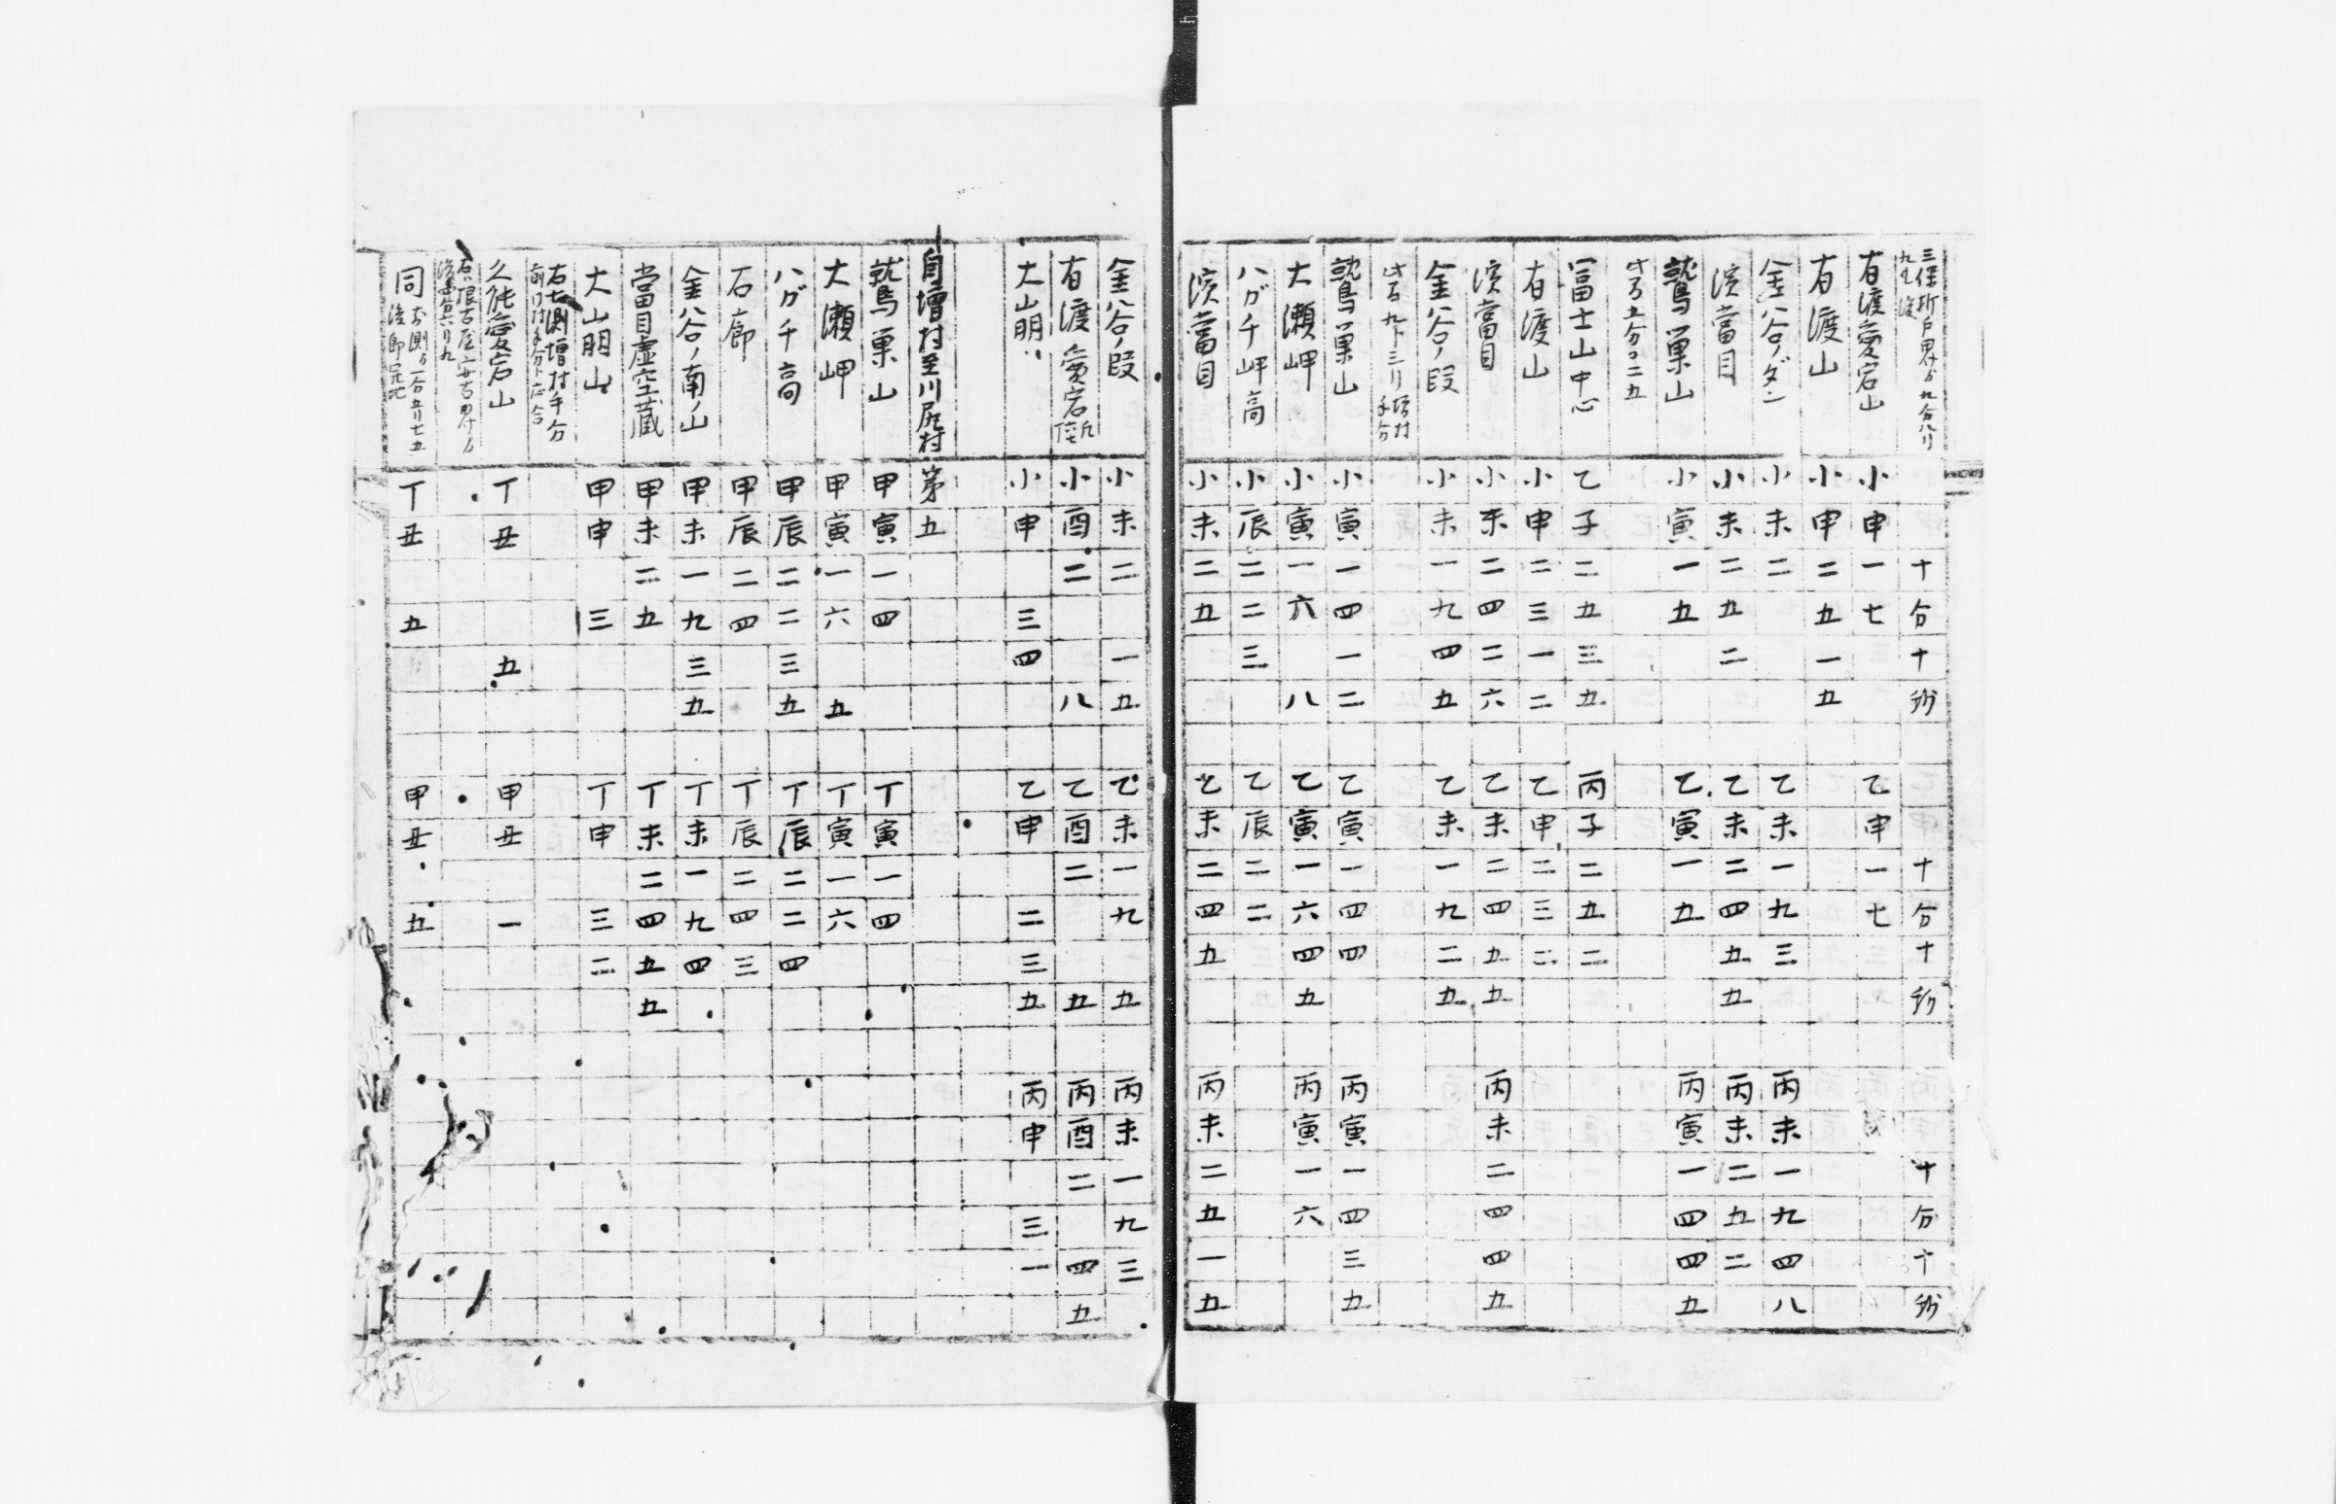 三保折戸界ゟ九分八リ
十分十秒 十分十秒 十分十秒
有渡愛宕山 小申一七 乙申一七
有渡山 小申二五一五
金谷ノダン 小未二 乙未一九三 丙未一九四八
濱當目 小未二五二 乙未二四五五 丙未二五二
鷲巣山 小寅一五 乙寅一五 丙寅一四四五
富士山中心 乙子二五三五 丙子二五二
有渡山 小申二三一二 乙申二三二
濱當目 小未二四二六 乙未二四五五 丙未二四四五
金谷ノ段 小未一九四五 乙未一九二五
鷲巣山 小寅一四一二 乙寅一四四 丙寅一四三五
大瀬岬 小寅一六八 乙寅一六四五 丙寅一六
ハガチ岬高 小辰二二三 乙辰二二
濱當目 小未二五 乙未二四五 丙未二五一五
金谷ノ段 小未二一五 乙未一九五 丙未一九三
有渡愛宕 小酉二八 乙酉二五 丙酉二四五
大山明〃 小申三四 乙申二三五 丙申三一
自増村至川尻村 第五
鷲巣山 甲寅一四 丁寅一四
大瀬岬 甲寅一六五 丁寅一六
ハガチ高 甲辰二二三五 丁辰二二四
石廊 甲辰二四 丁辰二四三
金谷ノ南ノ山 甲未一九三五 丁未一九四
當目虚空蔵 甲未二五 丁未二四五五
大山明山 甲申三 丁申三二
右七測増村手分
久能愛宕山 丁丑五 甲丑一
同 丁丑五 甲丑五